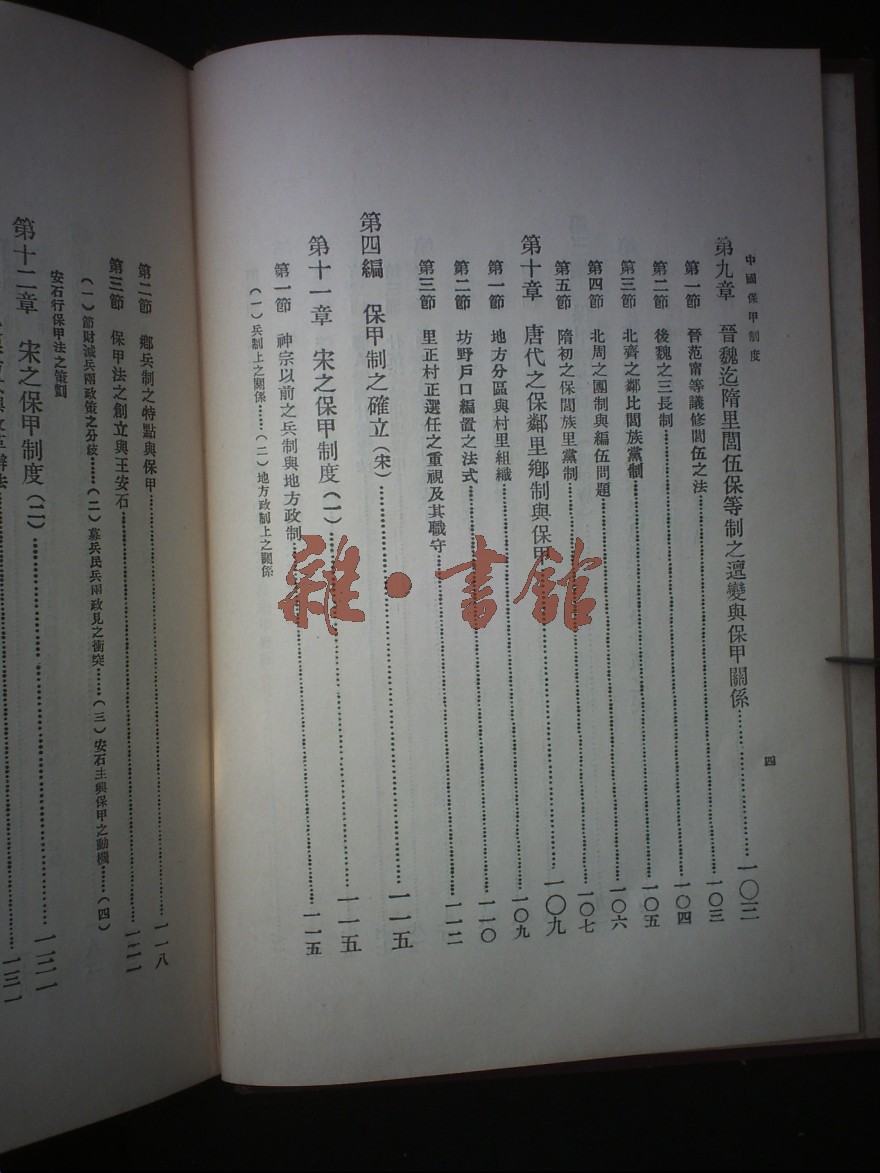 中國保甲制度
四
第九章 晉魏迄隋里閭伍保等制之遞變與保甲關係…………一〇二
第一節 晉范甯等議修閭伍之法…………一〇三
第二節 後魏之三長制…………一〇四
第三節 北齊之鄰比閭族黨制…………一〇五
第四節 北周之團制與編伍問題…………一〇六
第五節 隋初之保閭族里黨制…………一〇七
第十章 唐代之保鄰里鄉制與保甲…………一〇九
第一節 地方分區與村里組織…………一〇九
第二節 坊野戶口編置之法式…………一一〇
第三節 里正村正選任之重視及其職守…………一一二
第四編 保甲制之確立(宋)…………一一五
第十一章 宋之保甲制度(一)…………一一五
第一節 神宗以前之兵制與地方政制…………一一五
(一)兵制上之關係……(二)地方政制上之關係
第二節 鄉兵制之特點與保甲…………一一八
第三節 保甲法之創立與王安石…………一二一
(一)節財減兵兩政策之分歧……(二)募兵民兵兩政見之衝突……(三)安石主興保甲之動機……(四)
安石行保甲法之策劃
第十二章 宋之保甲制度(二)…………一三一
一三一
雜·書館